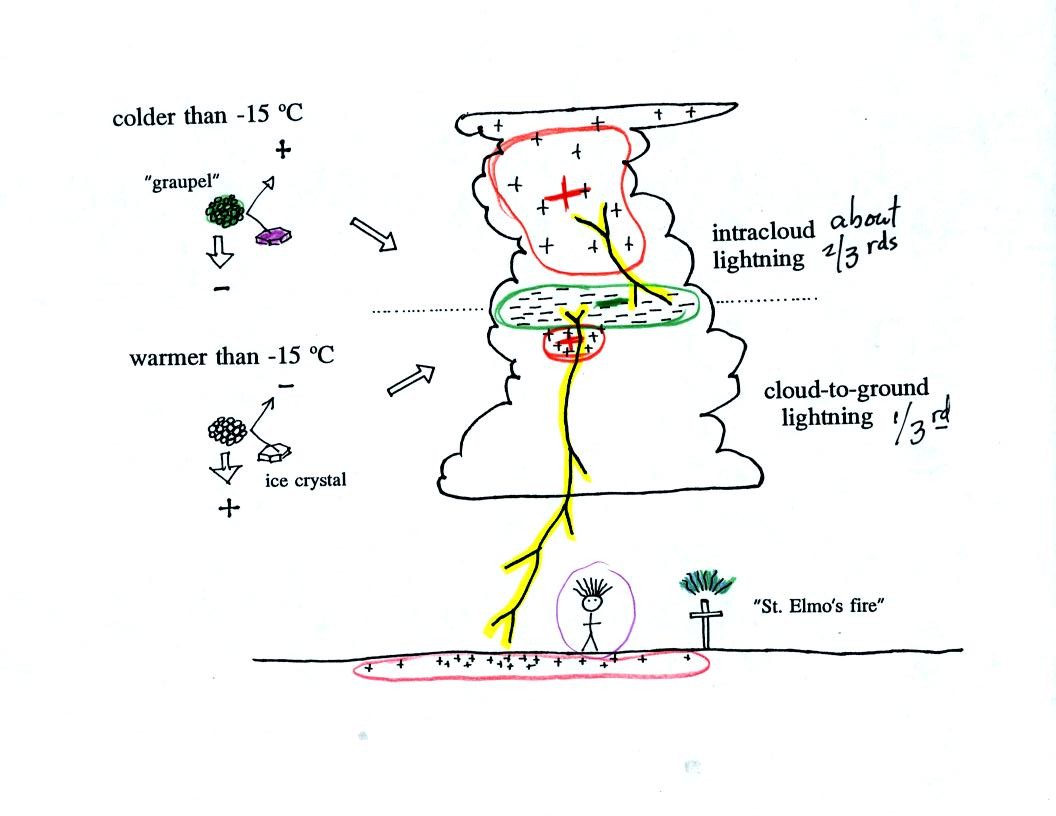 colder than -15 ºC
+
"graupel"
-
warmer than -15 ºC
-
ice crystal
+
intracloud about
lightning 2/3 rds
cloud-to-ground
lightning 1/3 rd
"St. Elmo's fire"